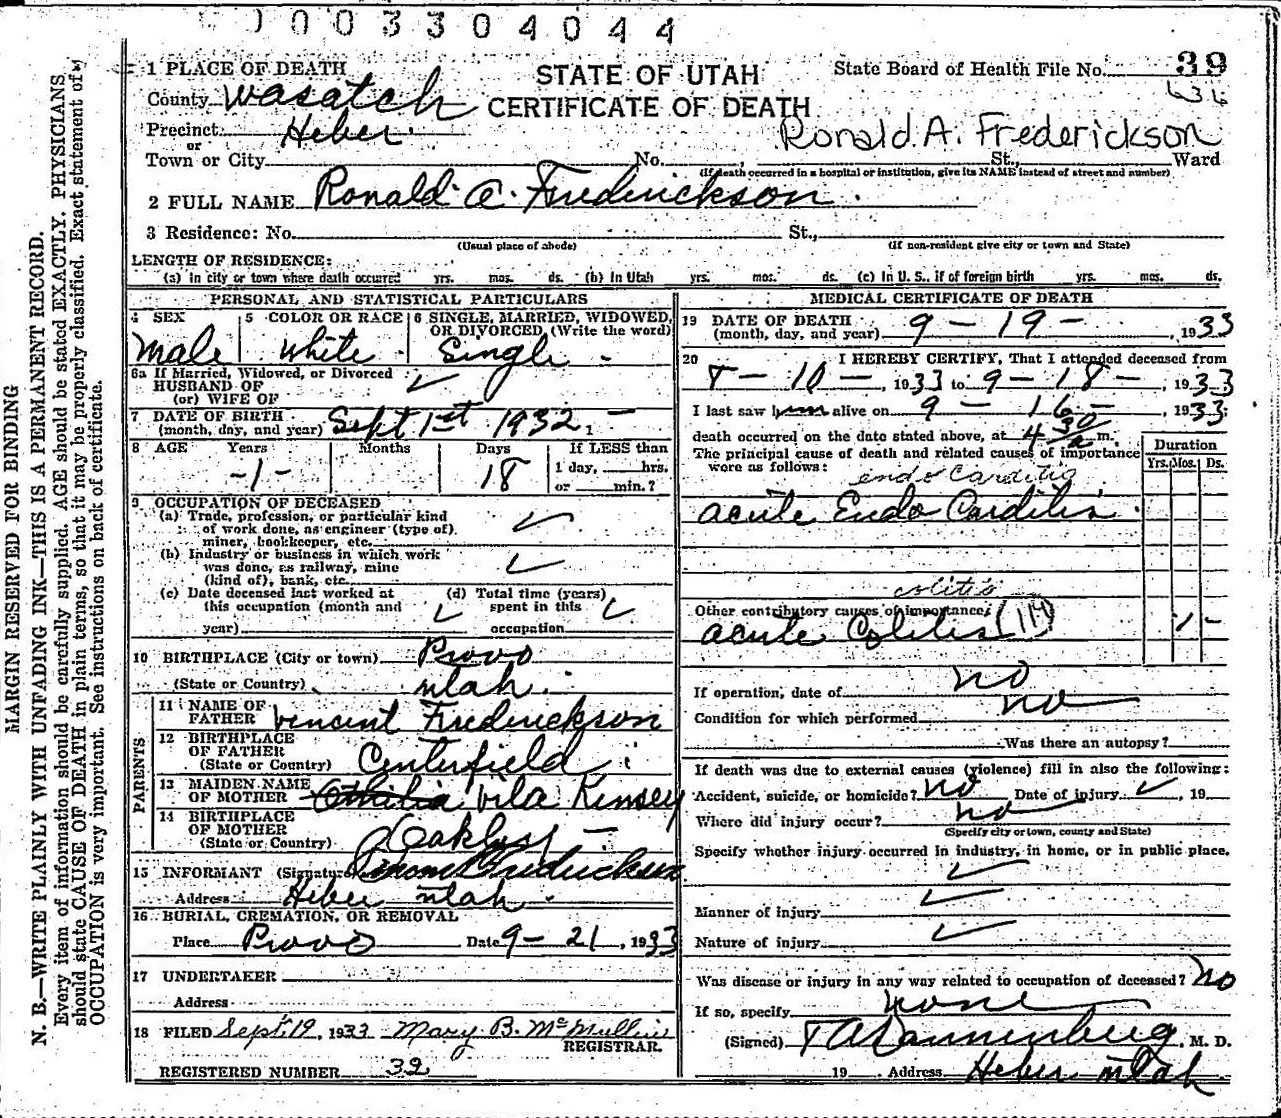 0 0 3 3 0 4 0 4 4
MARGIN RESERVED FOR BINDING
N. B.—WRITE PLAINLY WITH UNFADING INK—THIS IS A PERMANENT RECORD.
Every item of information should be carefully supplied. AGE should be stated EXACTLY. PHYSICIANS
should state CAUSE OF DEATH in plain terms, so that it may be properly classified. Exact statement of
OCCUPATION is very important. See instructions on back of certificate.
STATE OF UTAH
CERTIFICATE OF DEATH
State Board of Health File No. 39
636
1 PLACE OF DEATH
County Wasatch
Precinct Heber
or
Ronald A. Frederickson
Town or City No. St., Ward
(If death occurred in a hospital or institution, give its NAME instead of street and number)
2 FULL NAME Ronald A. Frederickson
3 Residence: No. St.,
(Usual place of abode) (If non-resident give city or town and State)
LENGTH OF RESIDENCE:
(a) In city or town where death occurred yrs. mos. ds. (b) In Utah yrs. mos. ds. (c) In U. S., if of foreign birth yrs. mos. ds.
PERSONAL AND STATISTICAL PARTICULARS
4 SEX 5 COLOR OR RACE 6 SINGLE, MARRIED, WIDOWED,
OR DIVORCED, (Write the word)
Male White Single
6a If Married, Widowed, or Divorced
HUSBAND OF
(or) WIFE OF ✓
7 DATE OF BIRTH
(month, day, and year) Sept 1st 1932
8 AGE Years Months Days If LESS than
1 day, hrs.
or min.?
-1- 18
9 OCCUPATION OF DECEASED
(a) Trade, profession, or particular kind
of work done, as engineer (type of)
miner, bookkeeper, etc. ✓
(b) Industry or business in which work
was done, as railway, mine
(kind of), bank, etc. ✓
(c) Date deceased last worked at (d) Total time (years)
this occupation (month and spent in this
year) ✓ occupation ✓
10 BIRTHPLACE (City or town) Provo
(State or Country) Utah
PARENTS
11 NAME OF
FATHER Vencent Frederickson
12 BIRTHPLACE
OF FATHER
(State or Country) Centerfield
13 MAIDEN NAME
OF MOTHER Vila Kinsey
14 BIRTHPLACE
OF MOTHER
(State or Country)
15 INFORMANT (Signature) Fredrickson
Address Heber Utah
16 BURIAL, CREMATION, OR REMOVAL
Place Provo Date 9-21, 1933
17 UNDERTAKER
Address
18 FILED Sept. 19, 1933 Mary B. McMullin
REGISTRAR
REGISTERED NUMBER 32
MEDICAL CERTIFICATE OF DEATH
19 DATE OF DEATH
(month, day, and year) 9 - 19 - , 1933
20 I HEREBY CERTIFY, That I attended deceased from
8 - 10 - , 1933 to 9 - 18 - , 1933
I last saw him alive on 9 - 16 - , 1933;
death occurred on the date stated above, at 4 30 a m.
The principal cause of death and related causes of importance
were as follows:
Duration
Yrs. Mos. Ds.
endo Carditis
acute Endo Carditis
colitis
Other contributory causes of importance:
acute Colitis (114) 1 -
If operation, date of no
Condition for which performed no
Was there an autopsy?
If death was due to external causes (violence) fill in also the following:
Accident, suicide, or homicide? no Date of injury ✓, 19
Where did injury occur? no
(Specify city or town, county and State)
Specify whether injury occurred in industry, in home, or in public place.
✓
Manner of injury ✓
Nature of injury ✓
Was disease or injury in any way related to occupation of deceased? No
If so, specify none
(Signed) T A Dannenberg, M. D.
19 Address Heber Utah